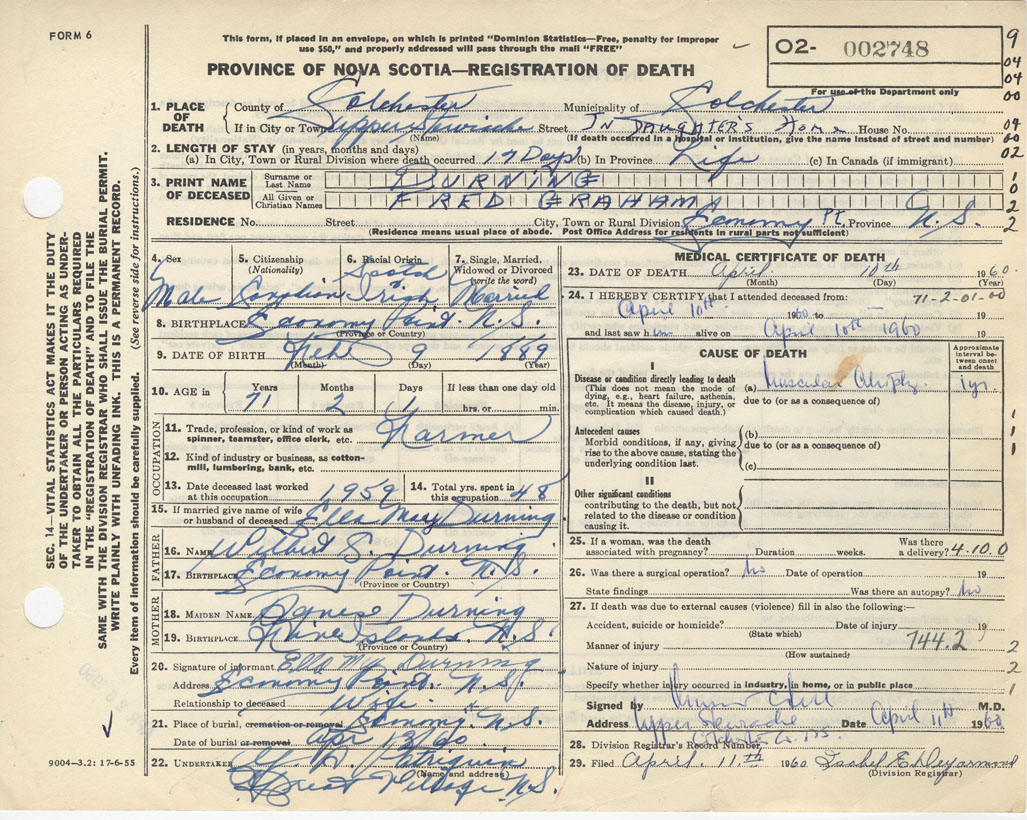 FORM 6
This form, if placed in an envelope, on which is printed "Dominion Statistics—Free, penalty for improper
use $50," and properly addressed will pass through the mail "FREE"
PROVINCE OF NOVA SCOTIA—REGISTRATION OF DEATH
02- 002748
For use of the Department only
9
04
04
00
1. PLACE OF DEATH
County of Colchester Municipality of Colchester
If in City or Town Upper Street IN DAUGHTER'S Home House No.
(Name) (If death occurred in a hospital or institution, give the name instead of street and number)
04
00
02
2. LENGTH OF STAY (in years, months and days)
(a) In City, Town or Rural Division where death occurred 17 Days (b) In Province Life (c) In Canada (if immigrant)
3. PRINT NAME OF DECEASED
Surname or Last Name DURNING
All Given or Christian Names FRED GRAHAM
1
0
2
2
RESIDENCE No. Street City, Town or Rural Division Economy Pt. Province N.S.
(Residence means usual place of abode. Post Office Address for residents in rural parts not sufficient)
4. Sex Male
5. Citizenship (Nationality) Canadian
6. Racial Origin Scotch Irish
7. Single, Married, Widowed or Divorced (write the word) Married
8. BIRTHPLACE Economy Point N.S.
(Province or Country)
9. DATE OF BIRTH Feb 9 1889
(Month) (Day) (Year)
10. AGE in Years 71 Months 2 Days 1 If less than one day old hrs. or min.
OCCUPATION
11. Trade, profession, or kind of work as spinner, teamster, office clerk, etc. Farmer
12. Kind of industry or business, as cotton-mill, lumbering, bank, etc.
13. Date deceased last worked at this occupation 1959
14. Total yrs. spent in this occupation 48
15. If married give name of wife or husband of deceased Ella May Durning
FATHER
16. NAME S. Durning
17. BIRTHPLACE Economy Point N.S.
(Province or Country)
MOTHER
18. MAIDEN NAME Durning
19. BIRTHPLACE Five Islands N.S.
(Province or Country)
20. Signature of informant Ella M Durning
Address Economy Point N.S.
Relationship to deceased Wife
21. Place of burial, cremation or removal Economy N.S.
Date of burial or removal Apr 13/60
22. UNDERTAKER Patriquin
(Name and address)
Great Village N.S.
MEDICAL CERTIFICATE OF DEATH
23. DATE OF DEATH April 10th 1960
(Month) (Day) (Year)
24. I HEREBY CERTIFY that I attended deceased from: 71-2-01-00
April 10th 1960 to 19
and last saw him alive on April 10th 1960 19
CAUSE OF DEATH
Approximate interval between onset and death
I
Disease or condition directly leading to death
(This does not mean the mode of dying, e.g., heart failure, asthenia, etc. It means the disease, injury, or complication which caused death.)
(a) Muscular Atrophy 1 yr.
due to (or as a consequence of)
Antecedent causes
Morbid conditions, if any, giving rise to the above cause, stating the underlying condition last.
(b)
due to (or as a consequence of)
(c)
1
1
1
II
Other significant conditions
contributing to the death, but not related to the disease or condition causing it.
25. If a woman, was the death associated with pregnancy? Duration weeks. Was there a delivery? 4.10.0
26. Was there a surgical operation? No Date of operation 19
State findings Was there an autopsy? No
27. If death was due to external causes (violence) fill in also the following:—
Accident, suicide or homicide? Date of injury 19
(State which)
Manner of injury 744.2 2
(How sustained)
Nature of injury 2
Specify whether injury occurred in industry, in home, or in public place 1
Signed by M.D.
Address Upper Date April 11th 1960
28. Division Registrar's Record Number
29. Filed April 11th 1960 Isabel E.
(Division Registrar)
SEC. 14—VITAL STATISTICS ACT MAKES IT THE DUTY
OF THE UNDERTAKER OR PERSON ACTING AS UNDER-
TAKER TO OBTAIN ALL THE PARTICULARS REQUIRED
IN THE "REGISTRATION OF DEATH" AND TO FILE THE
SAME WITH THE DIVISION REGISTRAR WHO SHALL ISSUE THE BURIAL PERMIT.
WRITE PLAINLY WITH UNFADING INK. THIS IS A PERMANENT RECORD.
Every item of information should be carefully supplied. (See reverse side for instructions.)
9004—3.2: 17-6-55